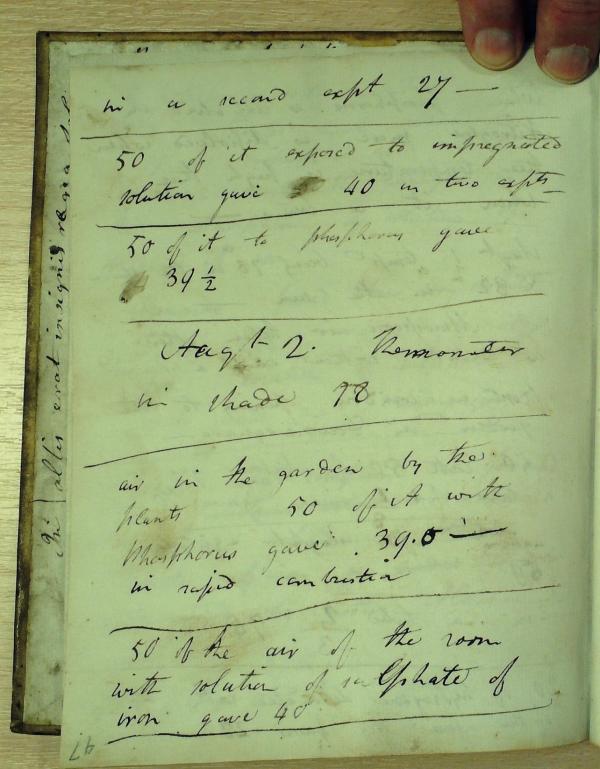 in a second expt 27 —
50 of it exposed to impregnated
solution gave 40 in two expts
50 of it to phosphorus gave
39 ½
Augt 2. Thermometer
in shade 78
air in the garden by the
plants 50 of it with
Phosphorus gave 39.0 —
in rapid combustion
50 of the air of the room
with solution of sulphate of
iron gave 40
47
In
allis erat insignis regia